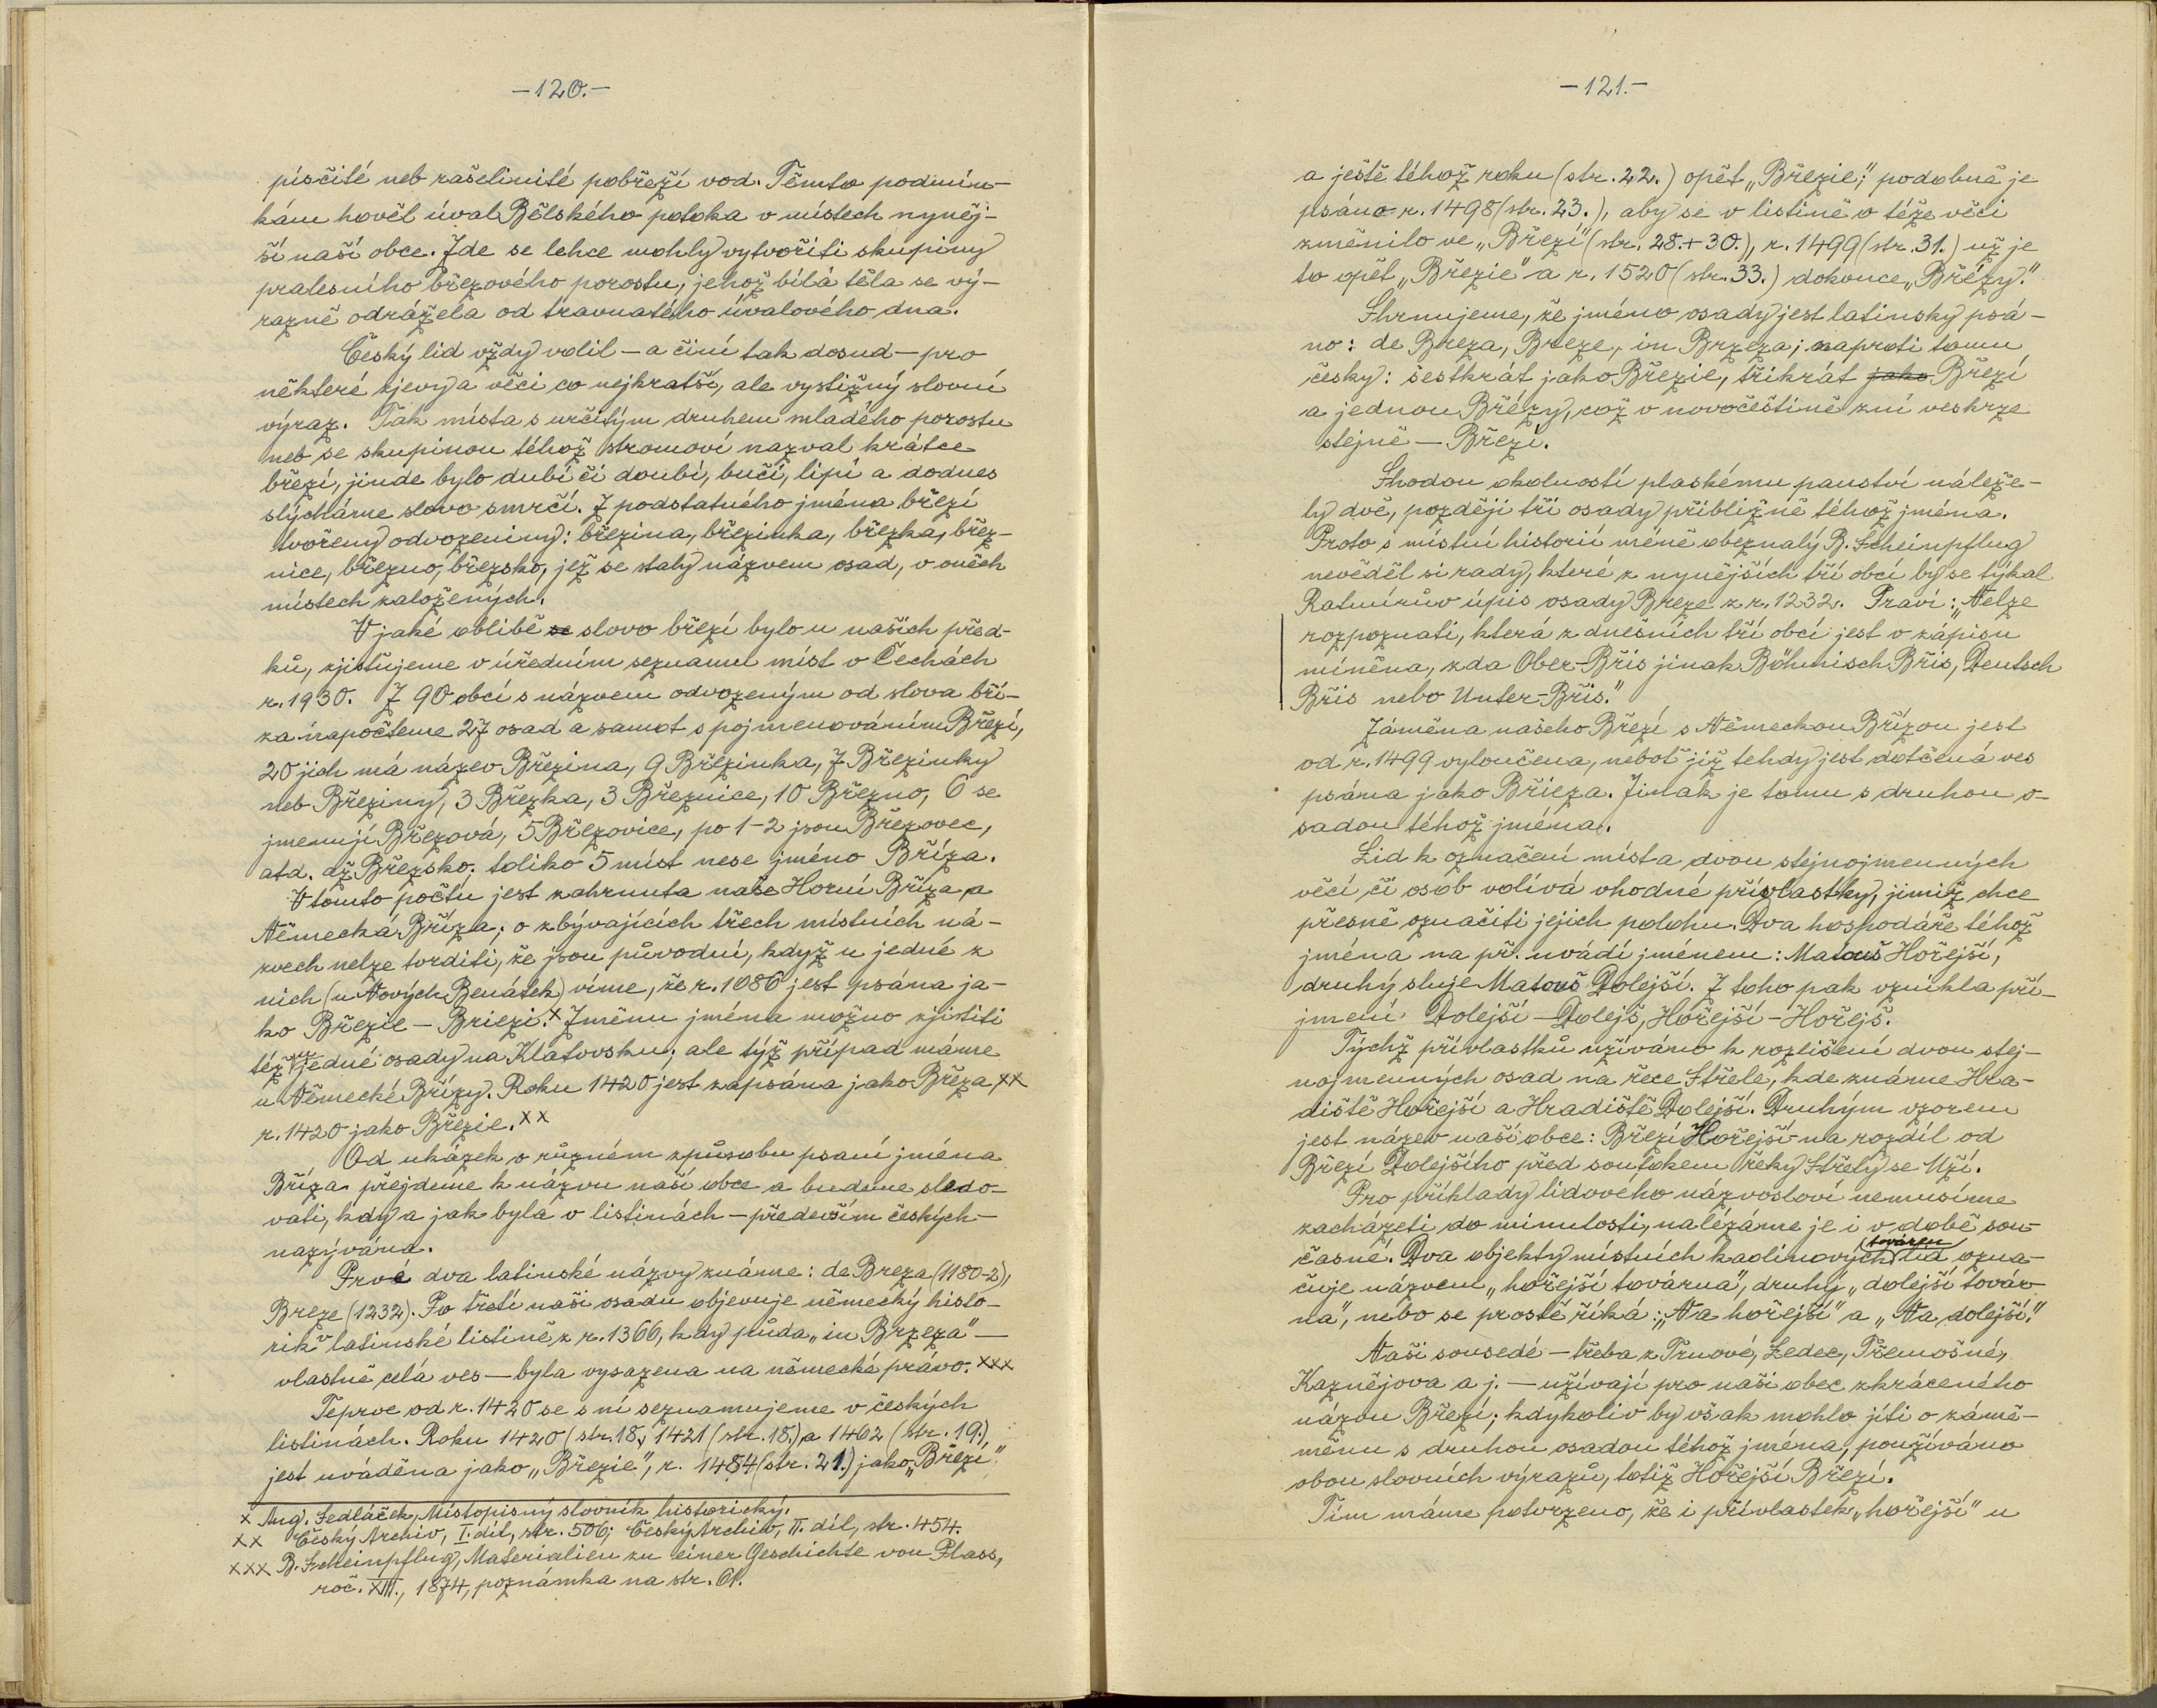 —120.—
písčité neb rašelinité pobřeží vod. Těmto podmín-
kám hověl úval Bělského potoka v místech nyněj-
ší naší obce. Zde se lehce mohly vytvořiti skupiny
pralesního březového porostu, jehož bílá těla se vý-
razně odrážela od travnatého úvalového dna.
Český lid vždy volil — a činí tak dosud — pro
některé zjevy a věci co nejkratší, ale vystižný slovní
výraz. Tak místa s určitým druhem mladého porostu
neb se skupinou téhož stromoví nazval krátce
březí, jinde bylo dubí či doubí, bučí, lipí a dodnes
slýcháme slovo smrčí. Z podstatného jména březí
tvořeny odvozeniny: březina, březinka, březka, břez-
nice, březno, březsko, jež se staly názvem osad, v oněch
místech založených.
V jaké oblibě se slovo březí bylo u našich před-
ků, zjišťujeme v úředním seznamu míst v Čechách
r. 1930. Z 90 obcí s názvem odvozeným od slova bří-
za napočteme 27 osad a samot s pojmenováním Březí,
20 jich má název Březina, 9 Březinka, 7 Březinky
neb Březiny, 3 Březka, 3 Březnice, 10 Březno, 6 se
jmenují Březová, 5 Březovice, po 1-2 jsou Březovec,
atd. až Březsko; toliko 5 míst nese jméno Bříza.
V tomto počtu jest zahrnuta naše Horní Bříza a
Německá Bříza; o zbývajících třech místních ná-
zvech nelze tvrditi, že jsou původní, když u jedné z
nich (u Nových Benátek) víme, že r. 1086 jest psána ja-
ko Březie — Briezi.x Změnu jména možno zjistiti
též u jedné osady na Klatovsku; ale týž případ máme
u Německé Břízy. Roku 1420 jest zapsána jako Březa,xx
r. 1420 jako Březie.xx
Od ukázek o různém způsobu psaní jména
Bříza přejdeme k názvu naší obce a budeme sledo-
vati, kdy a jak byla v listinách — především českých —
nazývána.
Prvé dva latinské názvy známe: de Breza (1180-2),
Breze (1232). Po třetí naši osadu objevuje německý histo-
rik v latinské listině z r. 1366, kdy půda „in Brzeza" —
vlastně celá ves — byla vysazena na německé právo.xxx
Teprve od r. 1420 se s ní seznamujeme v českých
listinách. Roku 1420 (str. 18.), 1421 (str. 18.) a 1462 (str. 19.),
jest uváděna jako „Březie", r. 1484 (str. 21.) jako „Březí"
x Aug. Sedláček, Místopisný slovník historický.
xx Český Archiv, I. díl, str. 506; Český Archiv, II. díl, str. 454.
xxx B. Scheinpflug, Materialien zu einer Geschichte von Plass,
roč. XIII., 1874, poznámka na str. 61.
—121.—
a ještě téhož roku (str. 22.) opět „Březie"; podobně je
psáno r. 1498 (str. 23.), aby se v listině o téže věci
změnilo ve „Březí" (str. 28. + 30.), r. 1499 (str. 31.) už je
to opět „Březie" a r. 1520 (str. 33.) dokonce „Břézy."
Shrnujeme, že jméno osady jest latinsky psá-
no: de Breza, Breze, in Brzeza; naproti tomu
česky: šestkrát jako Březie, třikrát jako Březí
a jednou Břézy, což v novočeštině zní veskrze
stejně — Březí.
Shodou okolností plaskému panství náleže-
ly dvě, později tři osady přibližně téhož jména.
Proto s místní historií méně obeznalý B. Scheinpflug
nevěděl si rady, které z nynějších tří obcí by se týkal
Ratmírův úpis osady Breze z r. 1232. Praví: „Nelze
rozpoznati, která z dnešních tří obcí jest v zápisu
míněna, zda Ober-Břis jinak Böhmisch Břis, Deutsch
Břis nebo Unter-Břis."
Záměna našeho Březí s Německou Břízou jest
od r. 1499 vyloučena, neboť již tehdy jest dotčená ves
psána jako Břieza. Jinak je tomu s druhou o-
sadou téhož jména.
Lid k označení místa dvou stejnojmenných
věcí či osob volívá vhodné přívlastky, jimiž chce
přesně označiti jejich polohu. Dva hospodáře téhož
jména na př. uvádí jménem: Matouš Hořejší,
druhý sluje Matouš Dolejší. Z toho pak vznikla pří-
jmení Dolejší — Dolejš, Hořejší — Hořejš.
Týchž přívlastků užíváno k rozlišení dvou stej-
nojmenných osad na řece Střele, kde známe Hra-
diště Hořejší a Hradiště Dolejší. Druhým vzorem
jest název naší obce: Březí Hořejší na rozdíl od
Březí Dolejšího před soutokem řeky Střely se Mží.
Pro příklady lidového názvosloví nemusíme
zacházeti do minulosti, nalézáme je i v době sou-
časné. Dva objekty místních kaolinových továren lid ozna-
čuje názvem „hořejší továrna", druhý „dolejší továr-
na", nebo se prostě říká: „Na hořejší" a „Na dolejší."
Naši sousedé — třeba z Trnové, Ledec, Třemošné,
Kaznějova a j. — užívají pro naši obec zkráceného
názvu Březí; kdykoliv by však mohlo jíti o zámě-
měnu s druhou osadou téhož jména, používáno
obou slovních výrazů, totiž Hořejší Březí.
Tím máme potvrzeno, že i přívlastek „hořejší" u